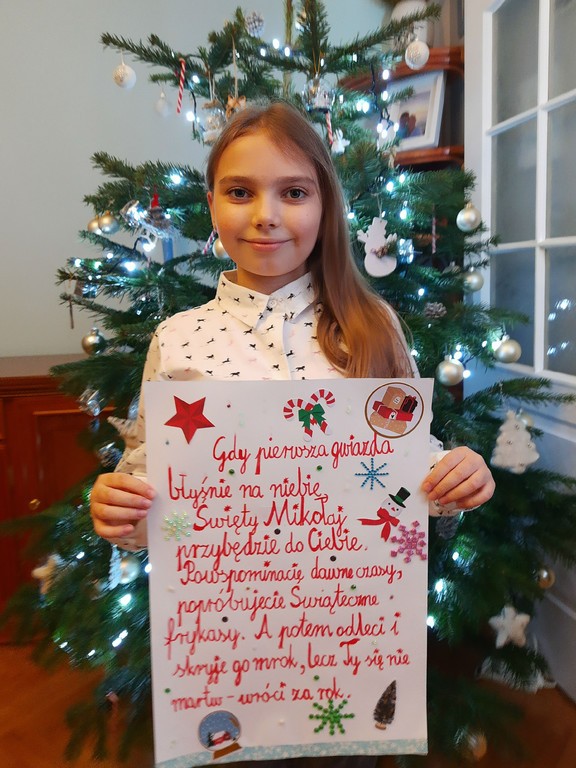 Gdy pierwsza gwiazda
błyśnie na niebie,
Święty Mikołaj
przybędzie do Ciebie.
Powspominacie dawne czasy,
popróbujecie Świąteczne
frykasy. A potem odleci i
skryje go mrok, lecz Ty się nie
martw - wróci za rok.